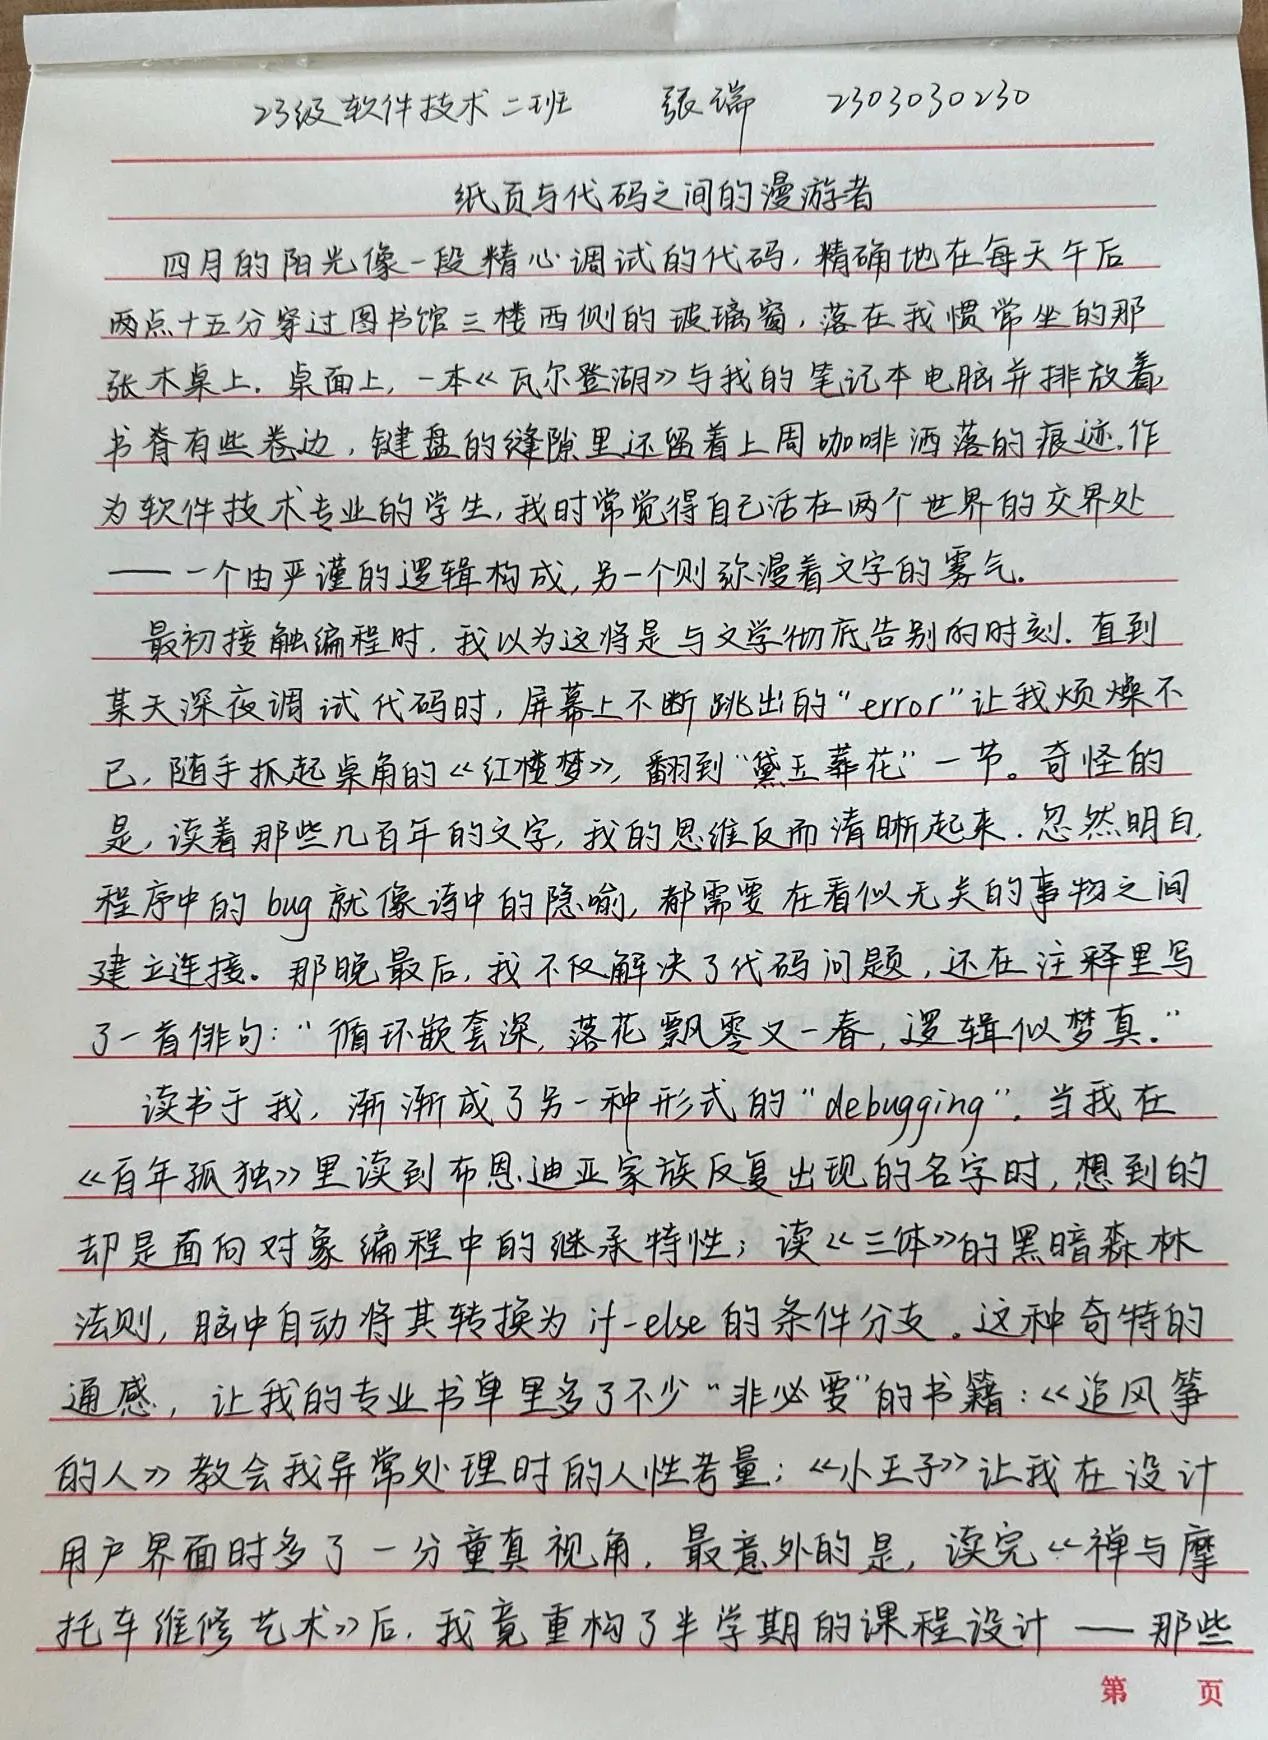 23级软件技术二班 张瑞 2303030230
纸页与代码之间的漫游者
四月的阳光像一段精心调试的代码，精确地在每天午后
两点十五分穿过图书馆三楼西侧的玻璃窗，落在我惯常坐的那
张木桌上。桌面上，一本《瓦尔登湖》与我的笔记本电脑并排放着，
书脊有些卷边，键盘的缝隙里还留着上周咖啡洒落的痕迹。作
为软件技术专业的学生，我时常觉得自己活在两个世界的交界处
——一个由严谨的逻辑构成，另一个则弥漫着文字的雾气。
最初接触编程时，我以为这将是与文学彻底告别的时刻。直到
某天深夜调试代码时，屏幕上不断跳出的“error”让我烦燥不
已，随手抓起桌角的《红楼梦》，翻到“黛玉葬花”一节。奇怪的
是，读着那些几百年的文字，我的思维反而清晰起来。忽然明白，
程序中的bug就像诗中的隐喻，都需要在看似无关的事物之间
建立连接。那晚最后，我不仅解决了代码问题，还在注释里写
了一首俳句：“循环嵌套深，落花飘零又一春，逻辑似梦真。”
读书于我，渐渐成了另一种形式的“debugging”。当我在
《百年孤独》里读到布恩迪亚家族反复出现的名字时，想到的
却是面向对象编程中的继承特性；读《三体》的黑暗森林
法则，脑中自动将其转换为if-else的条件分支。这种奇特的
通感，让我的专业书单里多了不少“非必要”的书籍：《追风筝
的人》教会我异常处理时的人性考量；《小王子》让我在设计
用户界面时多了一分童真视角。最意外的是，读完《禅与摩
托车维修艺术》后，我竟重构了半学期的课程设计——那些
第 页